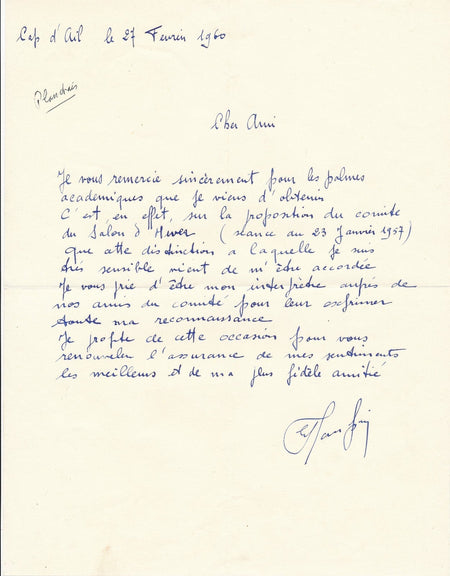 Cap d'Ail le 27 Fevrier 1960
Cher Ami
Je vous remercie sincèrement pour les palmes
academiques que je viens d'obtenir
C'est, en effet, sur la proposition du comité
du Salon d'Hiver (séance du 23 Janvier 1957)
que cette distinction a laquelle je suis
très sensible vient de m'être accordée
Je vous prie d'être mon interprète auprès de
nos amis du comité pour leur exprimer
toute ma reconnaissance
Je profite de cette occasion pour vous
renouveler l'assurance de mes sentiments
les meilleurs et de ma plus fidèle amitié